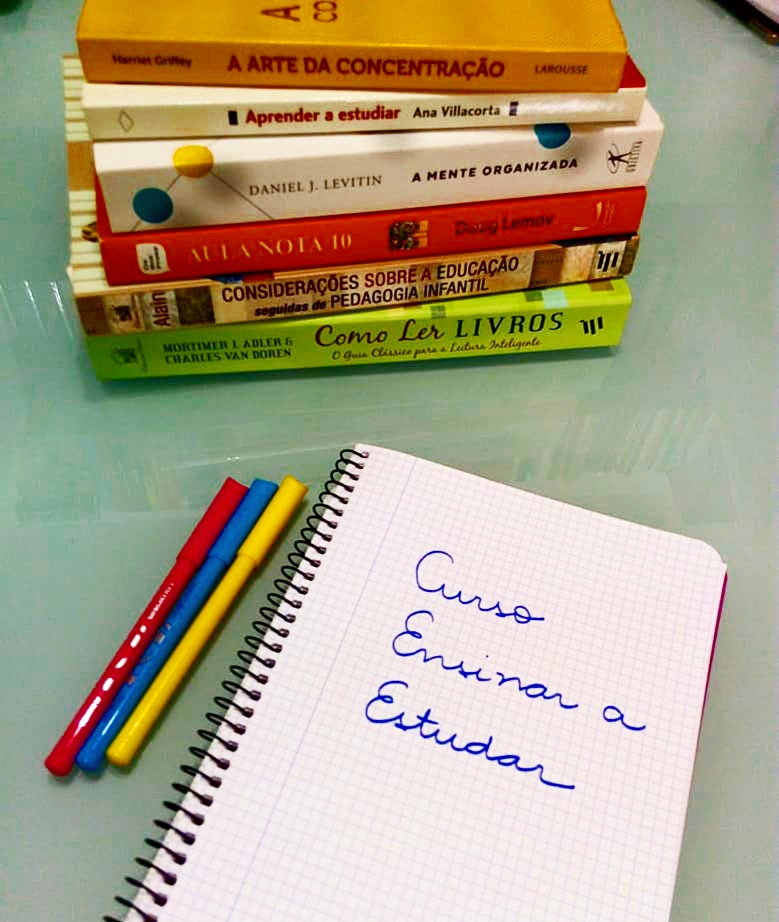 A
CO
Harriet Griffey A ARTE DA CONCENTRAÇÃO LAROUSSE
Aprender a estudiar Ana Villacorta
DANIEL J. LEVITIN A MENTE ORGANIZADA
AULA NOTA 10 Doug Lemov
Alain CONSIDERAÇÕES SOBRE A EDUCAÇÃO
seguidas de PEDAGOGIA INFANTIL
MORTIMER J. ADLER &
CHARLES VAN DOREN
Como Ler LIVROS
O Guia Clássico para a Leitura Inteligente
Curso
Ensinar a
Estudar